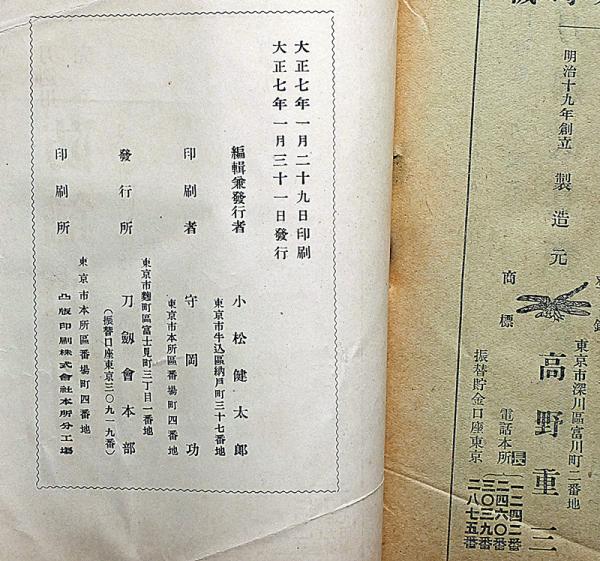 明治十九年創立
製造元
商標
東京市深川區富川町二番地
高野重三
電話本所
長
一二四二番
二四六〇番
三〇三九番
二八七五番
振替貯金口座東京
大正七年一月二十九日印刷
大正七年一月三十一日發行
編輯兼發行者
東京市牛込區納戸町三十七番地
小松健太郎
印刷者
東京市本所區番場町四番地
守岡功
發行所
東京市麴町區富士見町三丁目一番地
刀劔會本部
(振替口座東京三〇九一九番)
印刷所
東京市本所區番場町四番地
凸版印刷株式會社本所分工場